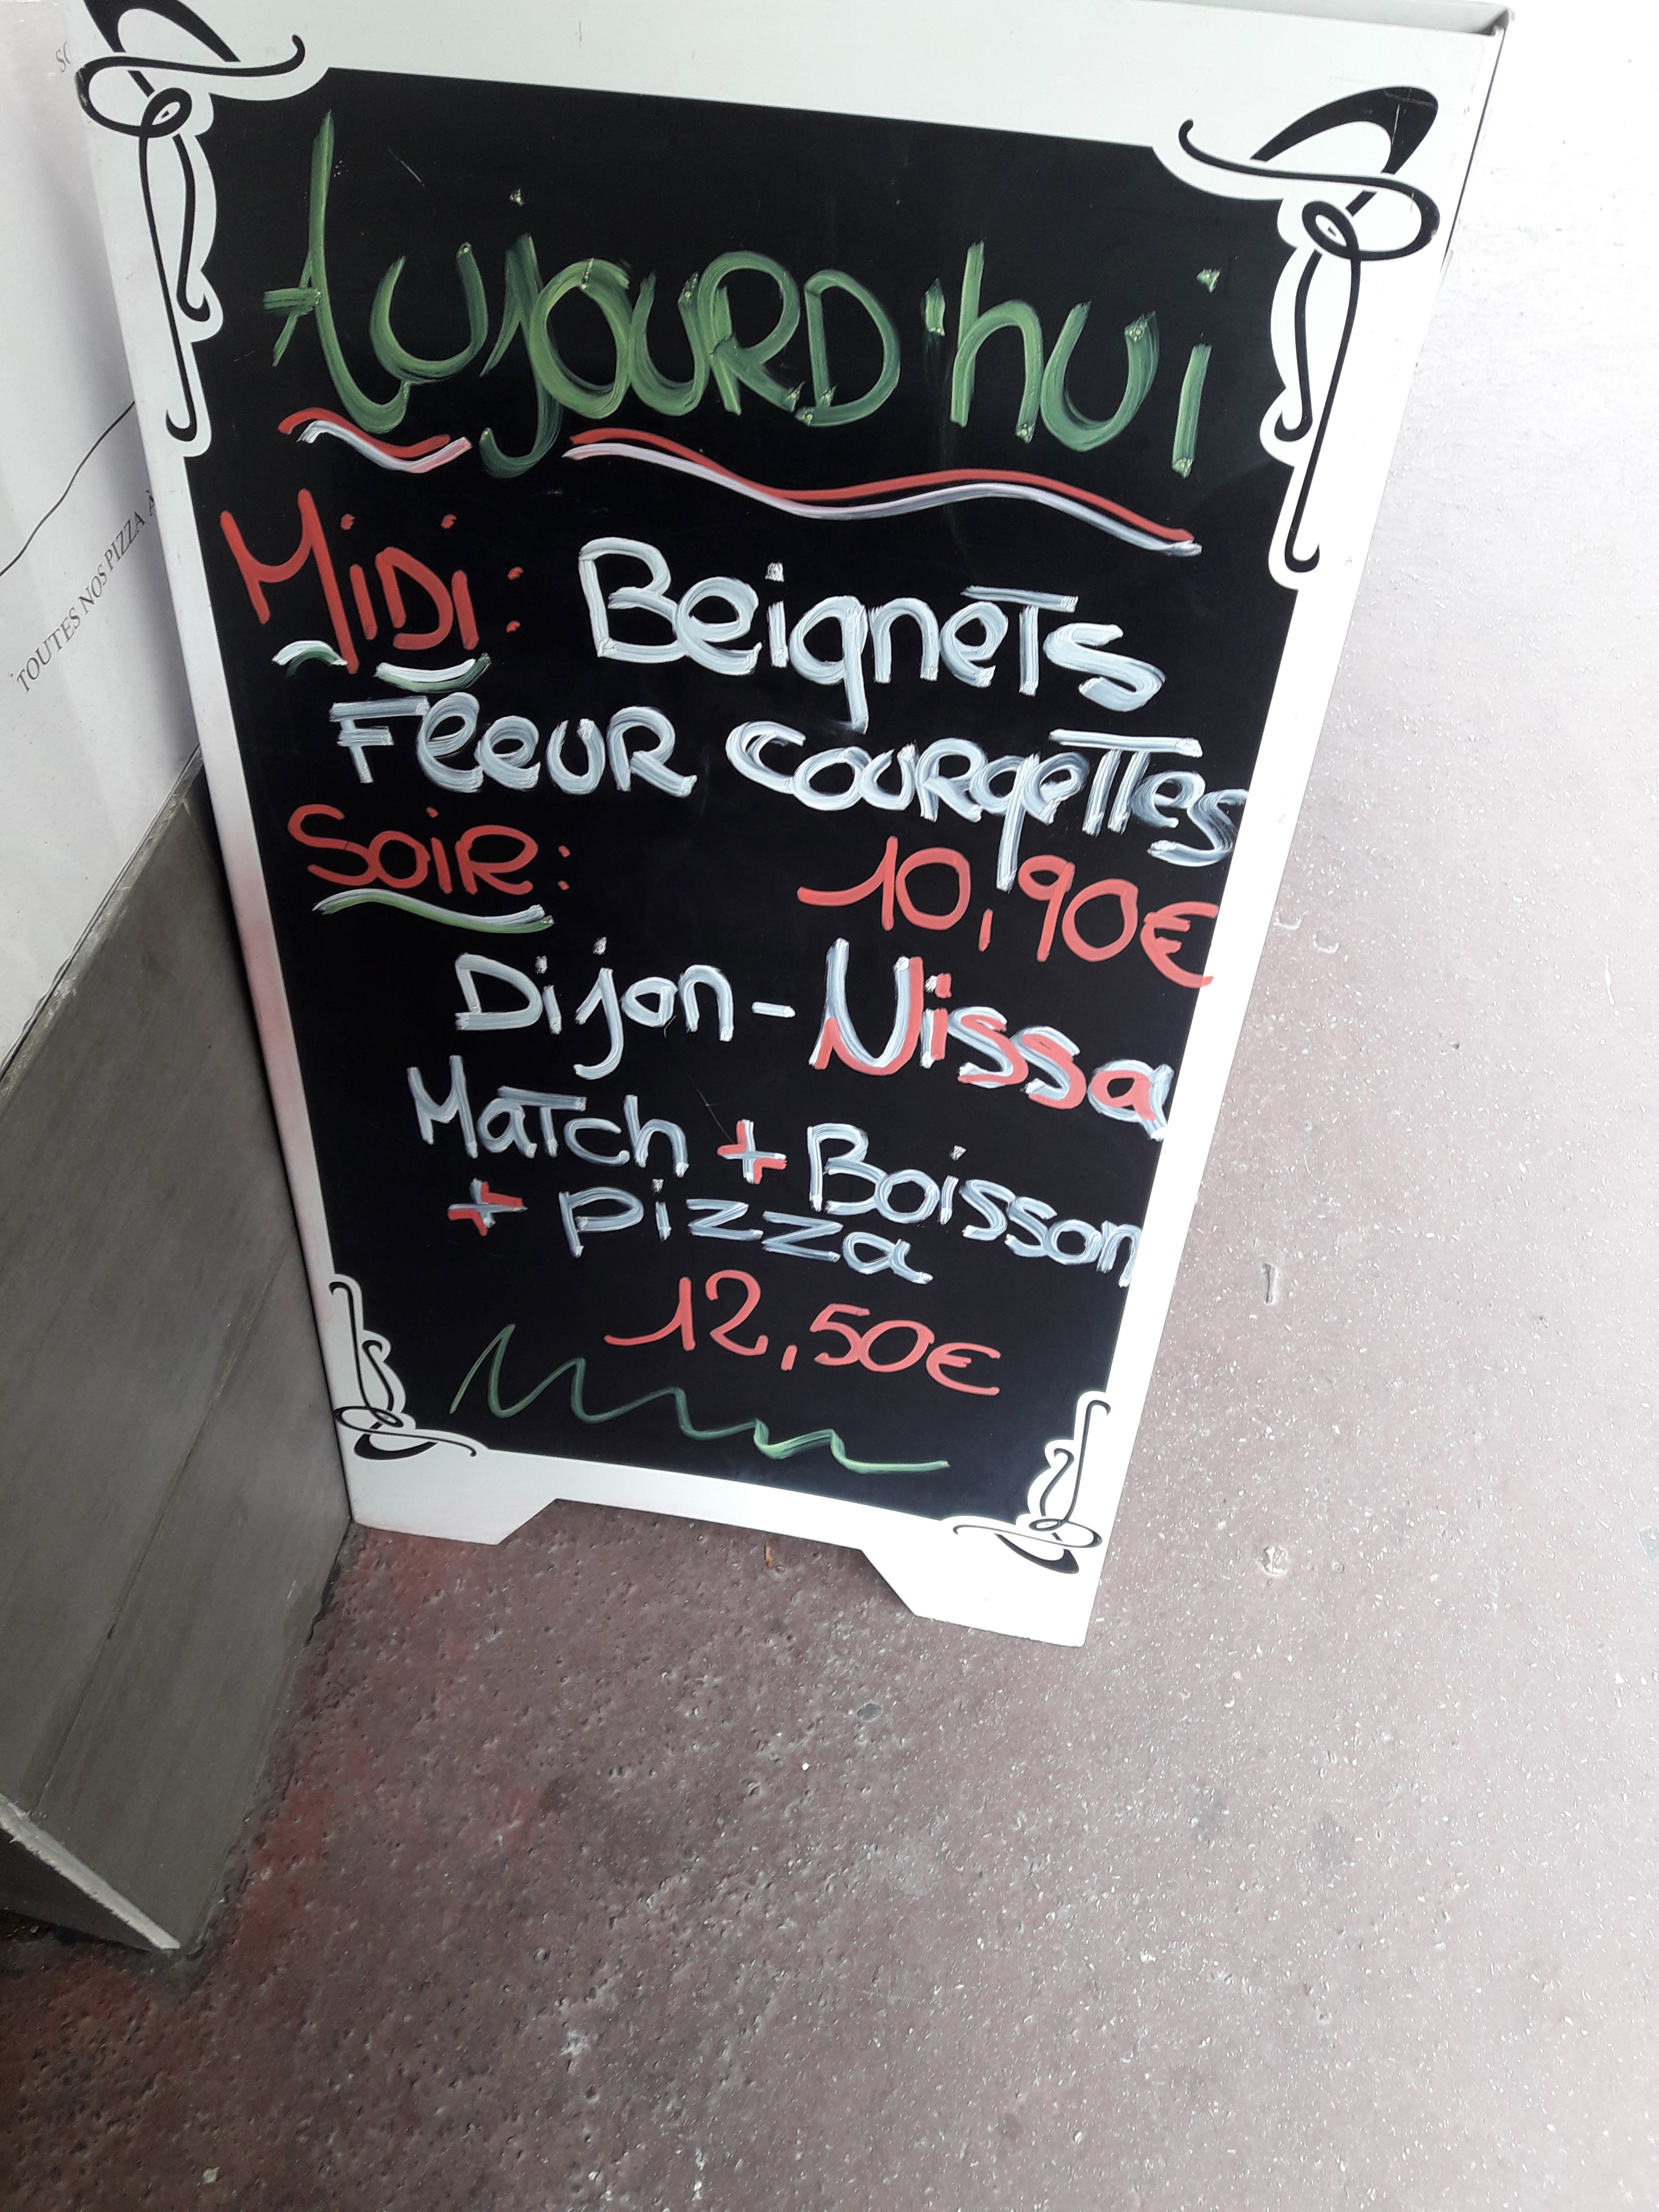 Aujourd'hui
Midi: Beignets
Fleur courgettes
Soir: 10,90€
Dijon - Nissa
Match + Boisson
+ pizza
12,50€
TOUTES NOS PIZZA À